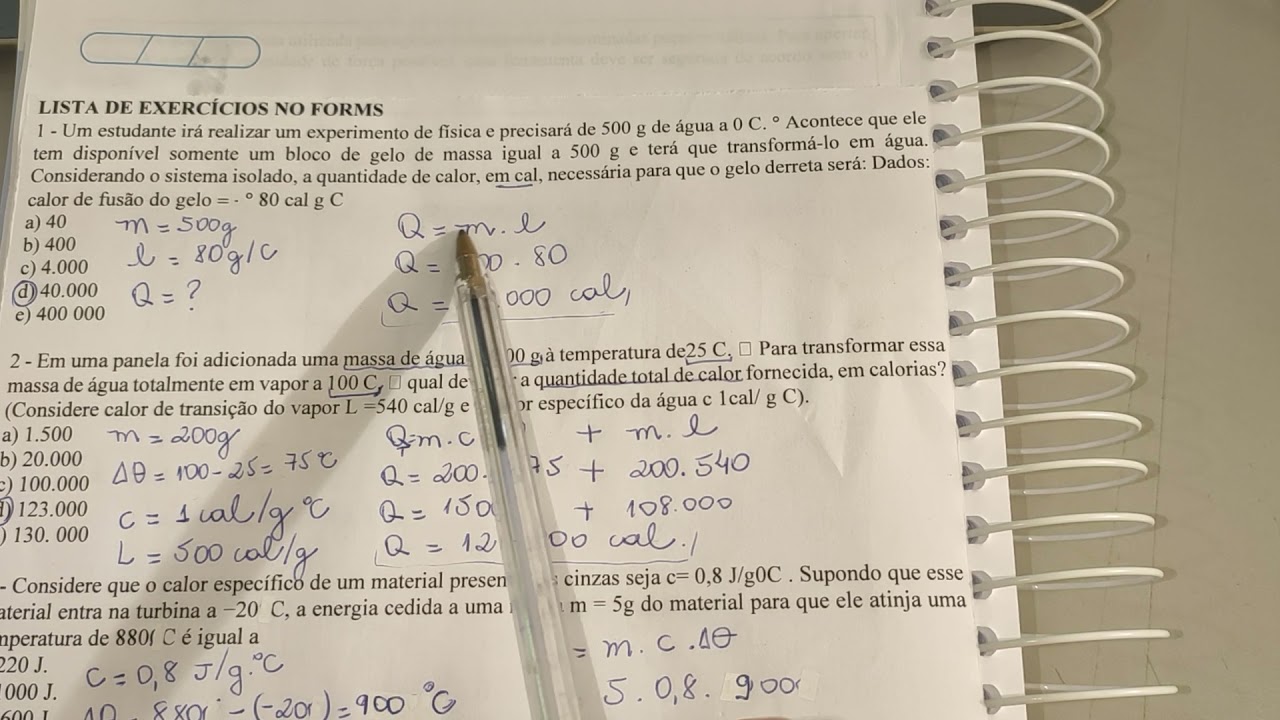 LISTA DE EXERCÍCIOS NO FORMS
1 - Um estudante irá realizar um experimento de física e precisará de 500 g de água a 0 C. ° Acontece que ele
tem disponível somente um bloco de gelo de massa igual a 500 g e terá que transformá-lo em água.
Considerando o sistema isolado, a quantidade de calor, em cal, necessária para que o gelo derreta será: Dados:
calor de fusão do gelo = - ° 80 cal g C
a) 40
b) 400
c) 4.000
d) 40.000
e) 400 000
m = 500g
l = 80g/C
Q = ?
Q = m. l
Q = 00 . 80
Q = .000 cal
2 - Em uma panela foi adicionada uma massa de água 00 g, à temperatura de25 C, □ Para transformar essa
massa de água totalmente em vapor a 100 C, □ qual de a quantidade total de calor fornecida, em calorias?
(Considere calor de transição do vapor L =540 cal/g e or específico da água c 1cal/ g C).
a) 1.500
b) 20.000
c) 100.000
) 123.000
) 130. 000
m = 200g
Δθ = 100 - 25 = 75 °C
c = 1 cal/g °C
L = 500 cal/g
Q=m.c + m. l
Q = 200. 75 + 200.540
Q = 150 + 108.000
Q = 12 00 cal.
- Considere que o calor específico de um material presen cinzas seja c= 0,8 J/g0C . Supondo que esse
aterial entra na turbina a −20 C, a energia cedida a uma m = 5g do material para que ele atinja uma
mperatura de 880 C é igual a
220 J.
000 J.
600 J
C = 0,8 J/g.°C
880 - (-20) = 900 °C
= m. c .Δθ
5 . 0,8 . 900